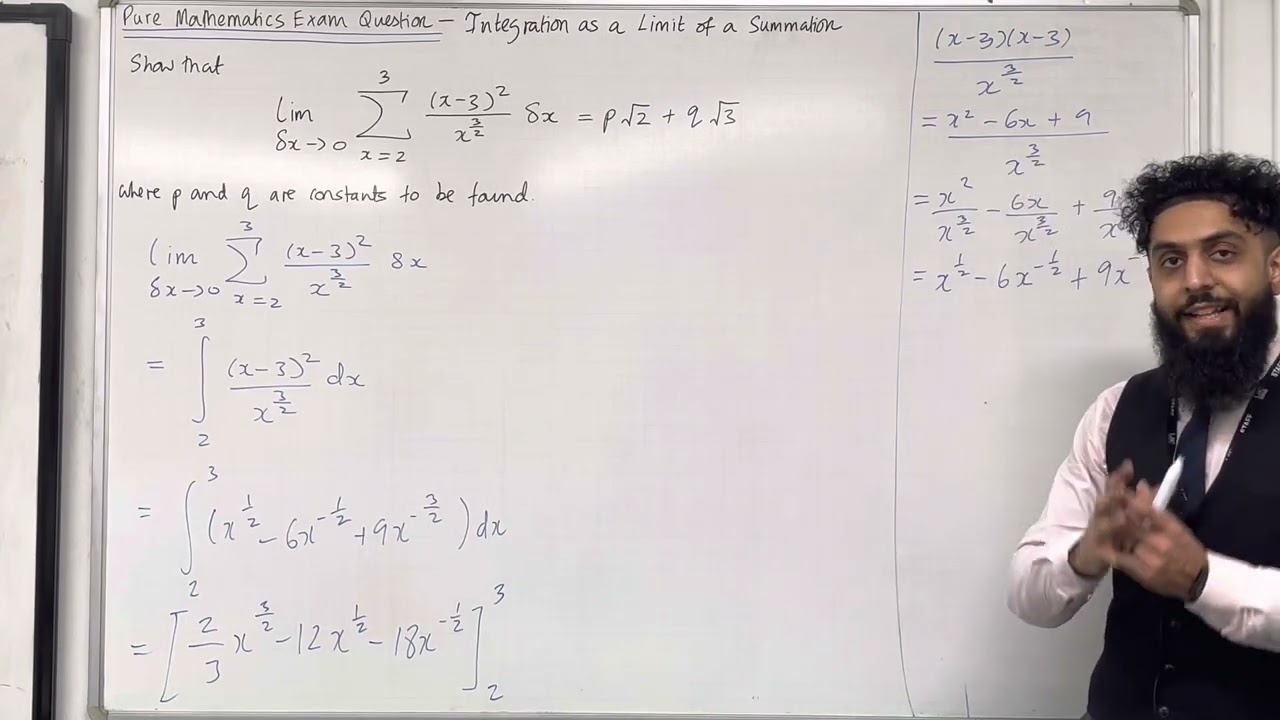 Pure Mathematics Exam Question – Integration as a Limit of a Summation
Show that
lim δx→0 ∑ x=2 3 (x-3)² / x^(3/2) δx = p√2 + q√3
where p and q are constants to be found.
lim δx→0 ∑ x=2 3 (x-3)² / x^(3/2) δx
= ∫ 2 3 (x-3)² / x^(3/2) dx
= ∫ 2 3 (x^(1/2) - 6x^(-1/2) + 9x^(-3/2)) dx
= [2/3 x^(3/2) - 12x^(1/2) - 18x^(-1/2)] 2 3
(x-3)(x-3) / x^(3/2)
= x² - 6x + 9 / x^(3/2)
= x² / x^(3/2) - 6x / x^(3/2) + 9 / x
= x^(1/2) - 6x^(-1/2) + 9x^-